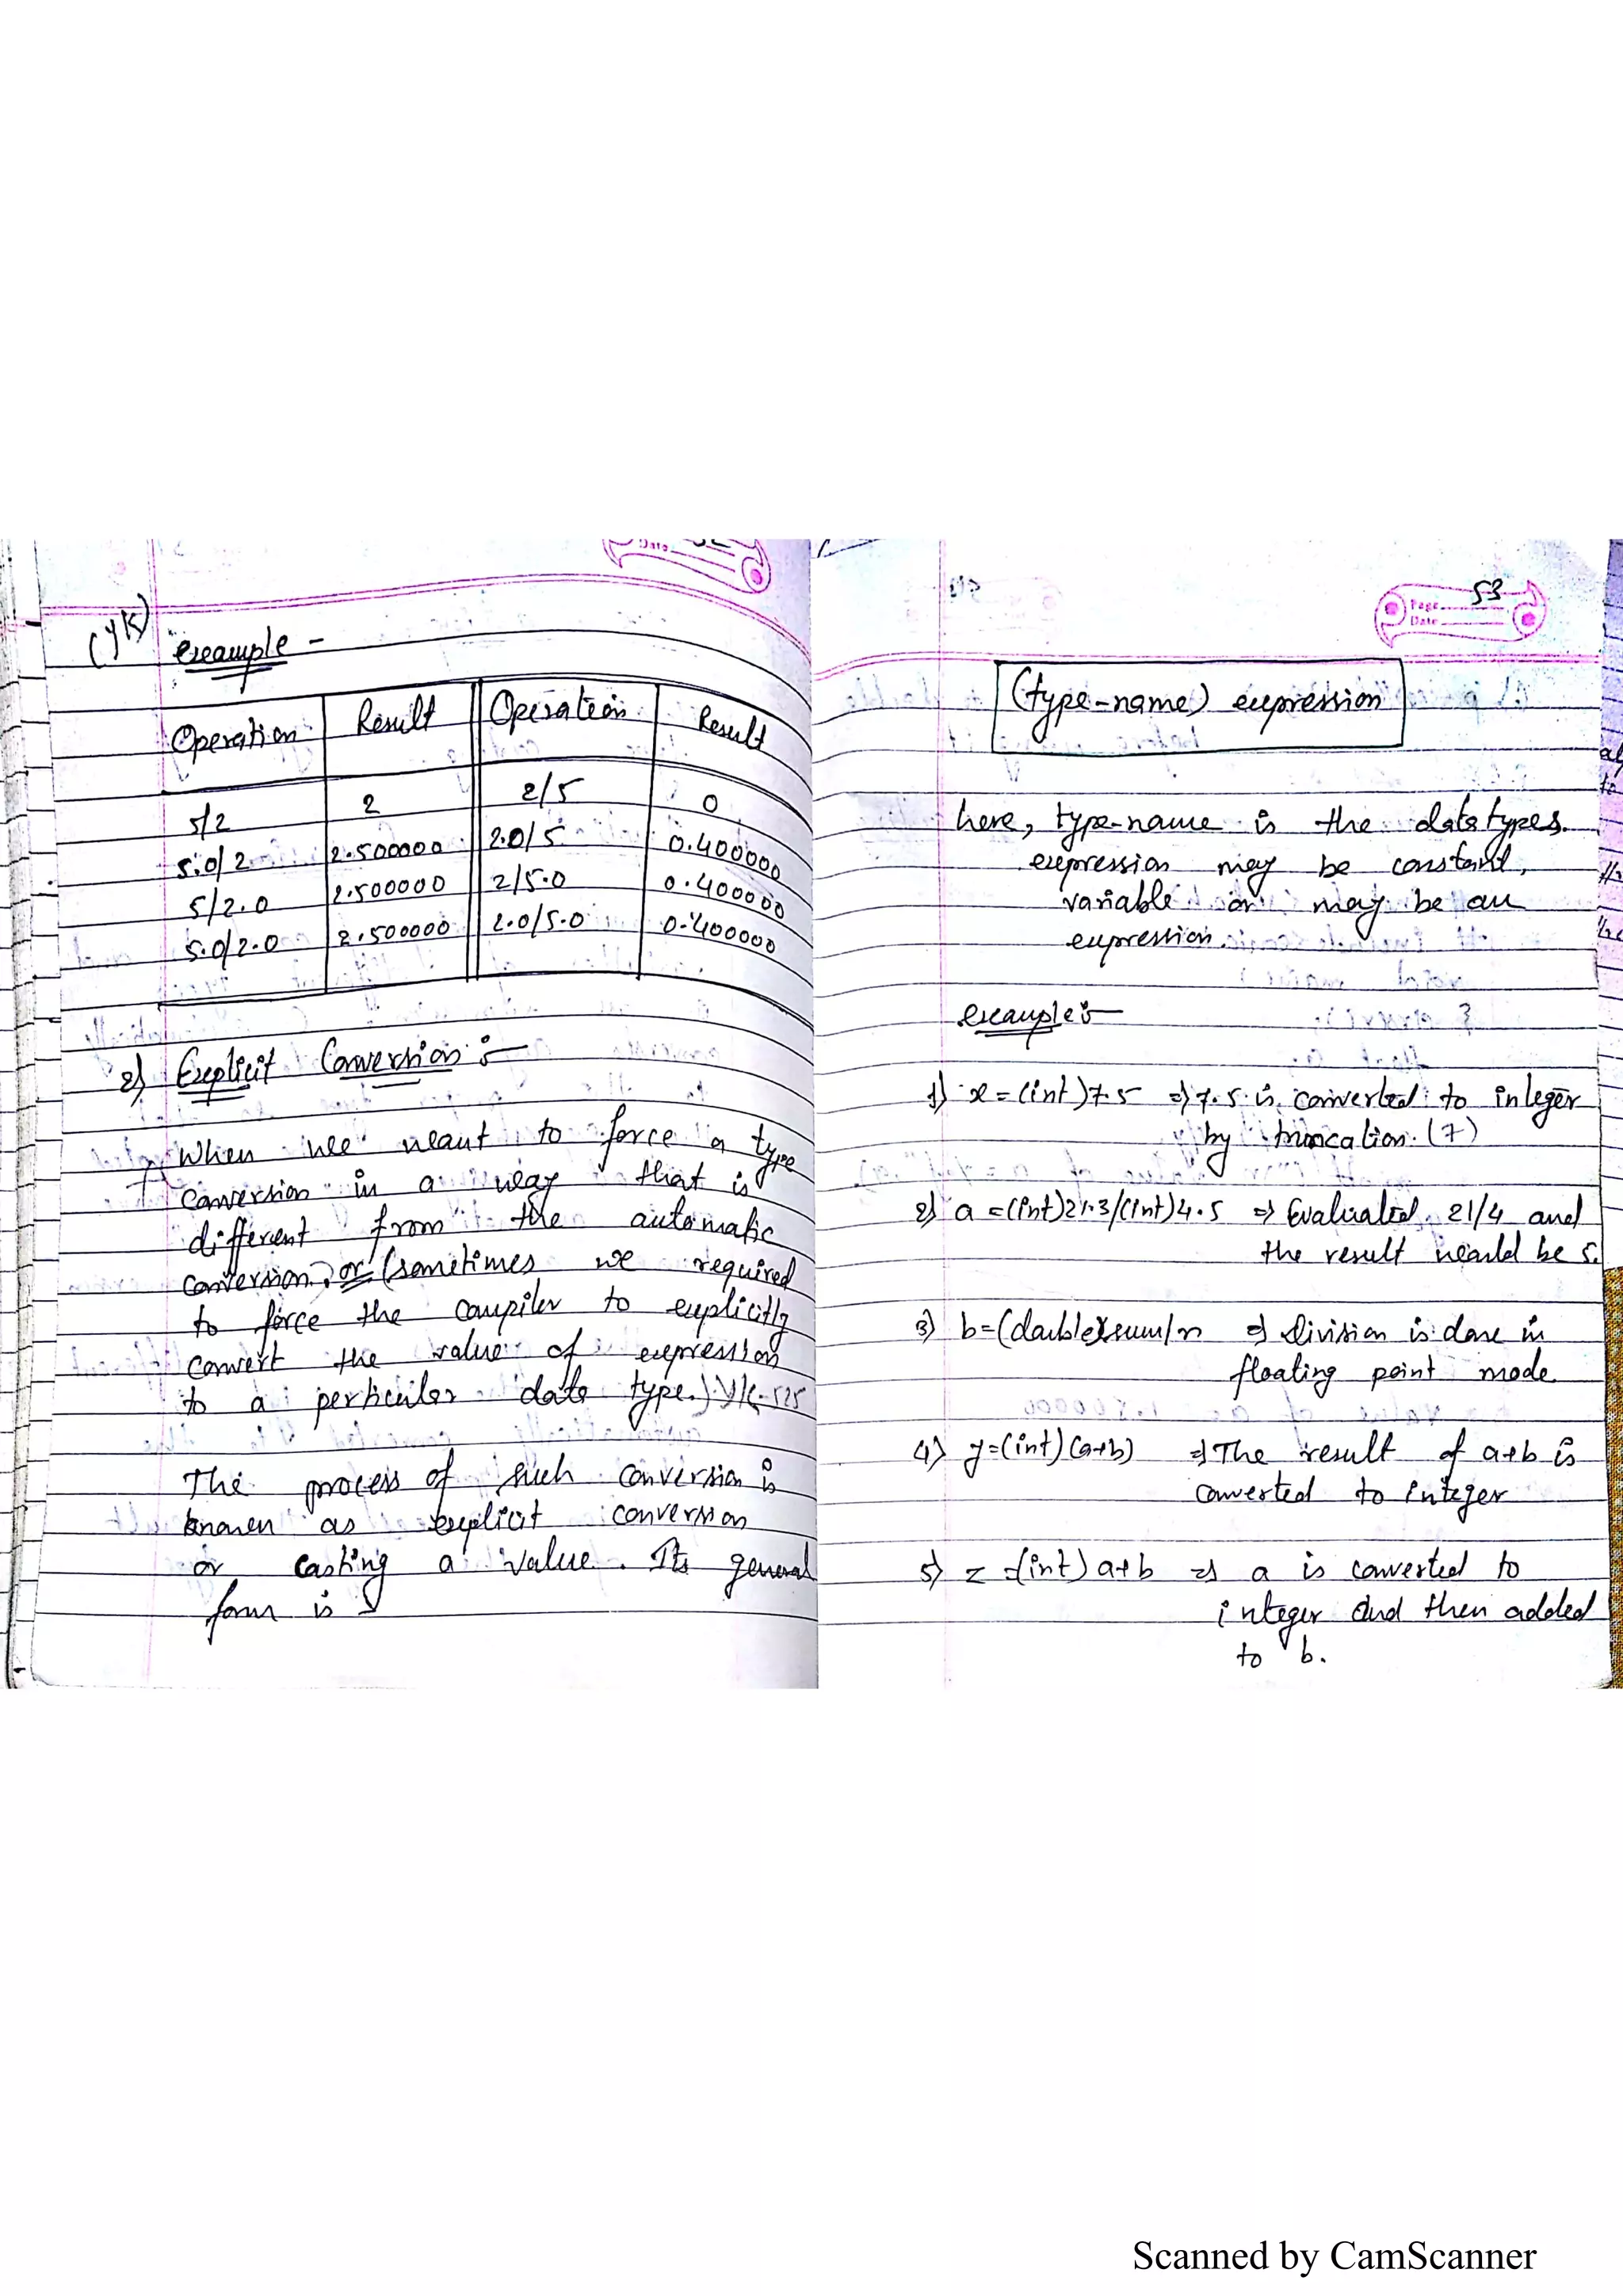 (YK) example -
Operation Result Operation Result
5/2 2 2/5 0
5.0/2 2.500000 2.0/5 0.400000
5/2.0 2.500000 2/5.0 0.400000
5.0/2.0 2.500000 2.0/5.0 0.400000
2) Explicit Conversion :-
When we want to force a type
conversion in a way that is
different from the automatic
conversion, or (sometimes we required
to force the compiler to explicitly
convert the value of expression
to a perticular data type.) YK-525
The process of such conversion is
known as explicit conversion
or casting a value. Its general
form is
Page 53
Date
(type-name) expression
here, type-name is the data types.
expression may be constant,
variable or may be an
expression.
example :-
1) x = (int)7.5 => 7.5 is converted to integer
by truncation. (7)
2) a = (int)21.3/(int)4.5 => Evaluated 21/4 and
the result would be 5.
3) b=(double)sum/n => division is done in
floating point mode.
4) y=(int)(a+b) => The result of a+b is
converted to integer
5) z =(int) a+b => a is converted to
integer and then added
to b.
Scanned by CamScanner